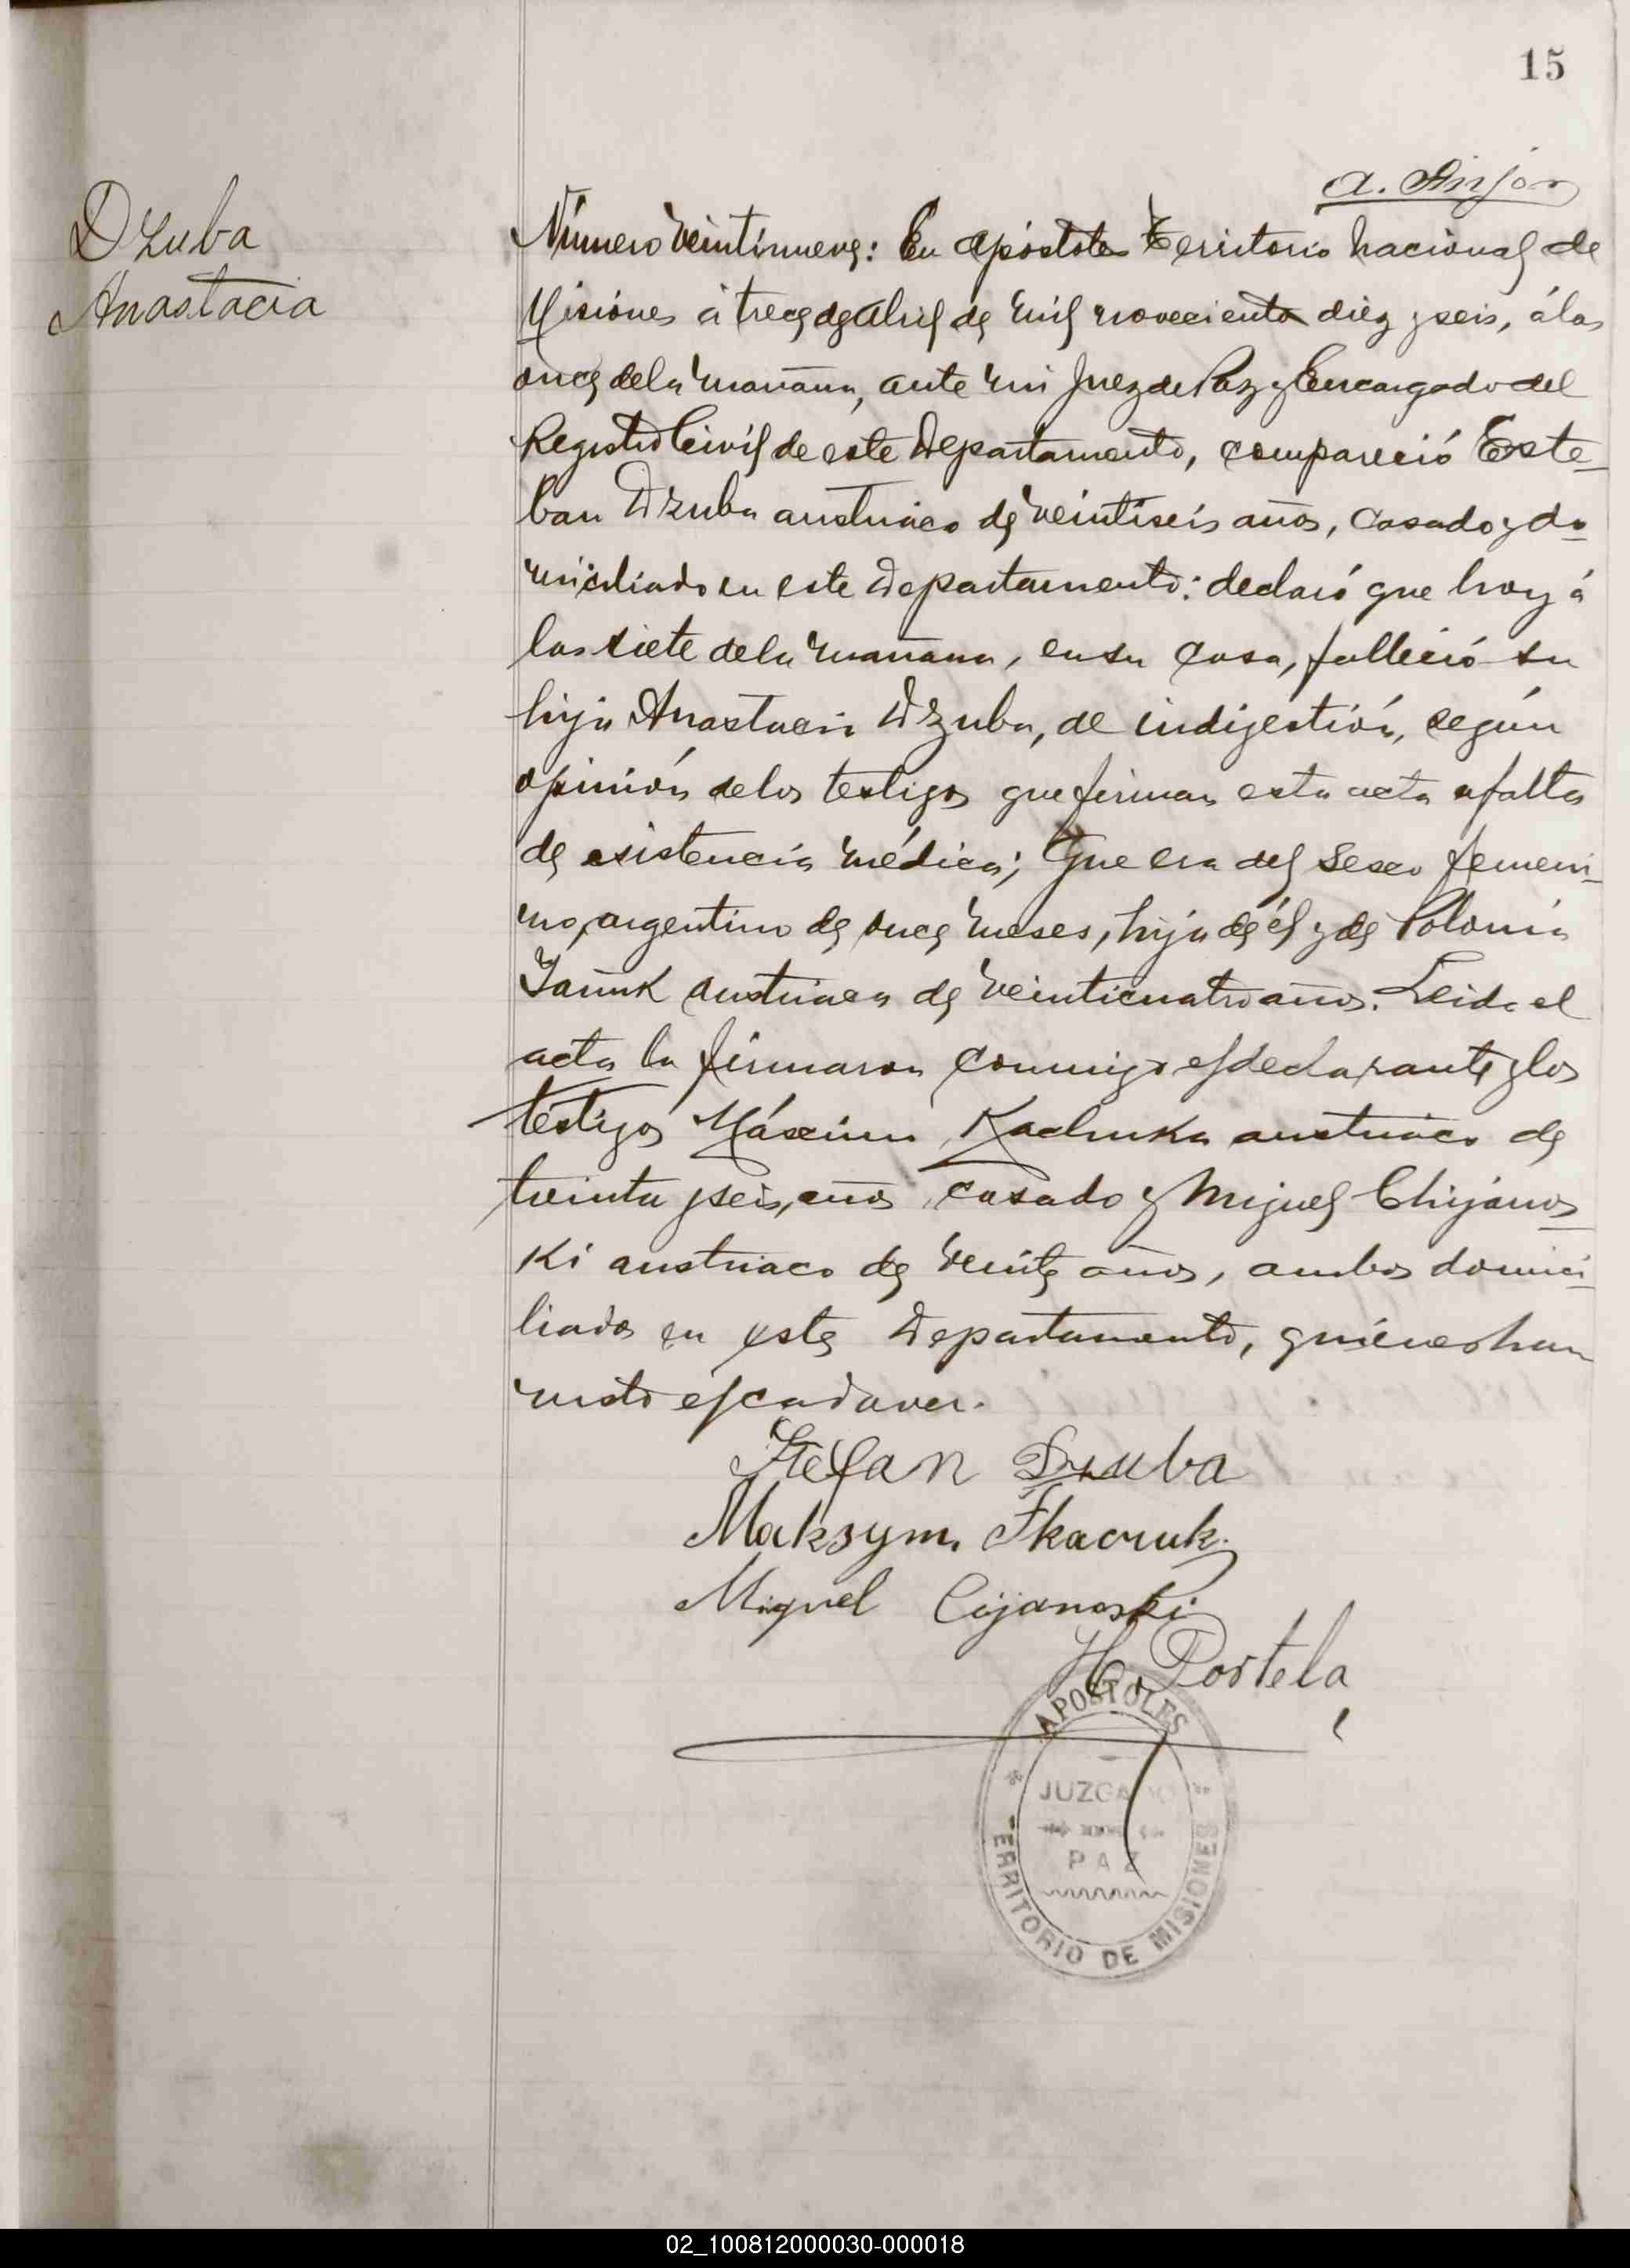 15
Dzuba
Anastacia
Número veintinueve: En Apóstoles Territorio Nacional de
Misiones á trece de Abril de mil novecientos diez y seis, á las
once de la mañana, ante mi Juez de Paz y Encargado del
Registro Civil de este Departamento, compareció Este-
ban Dzuba austriaco de veintiseis años, casado y do-
miciliado en este Departamento: declaró que hoy á
las siete de la mañana, en su casa, falleció su
hija Anastacia Dzuba, de indigestión, según
opinión de los testigos que firman esta acta a falta
de asistencia médica; Que era del sexo femeni-
no, argentino de once meses, hija de él y de Polonia
austriaca de veinticuatro años. Leida el
acta la firmaron conmigo el declarante y los
testigos Máximo Kachuka austriaco de
treinta y seis, años casado y Miguel Chijanos-
ki austriaco de veinte años, ambos domici-
liados en este Departamento, quienes han
visto el cadaver.
Stefan Dzuba
Maksym Tkaczuk.
Miguel Cijanoski
H. Portela
APOSTOLES
JUZGADO
PAZ
TERRITORIO DE MISIONES
02_100812000030-000018